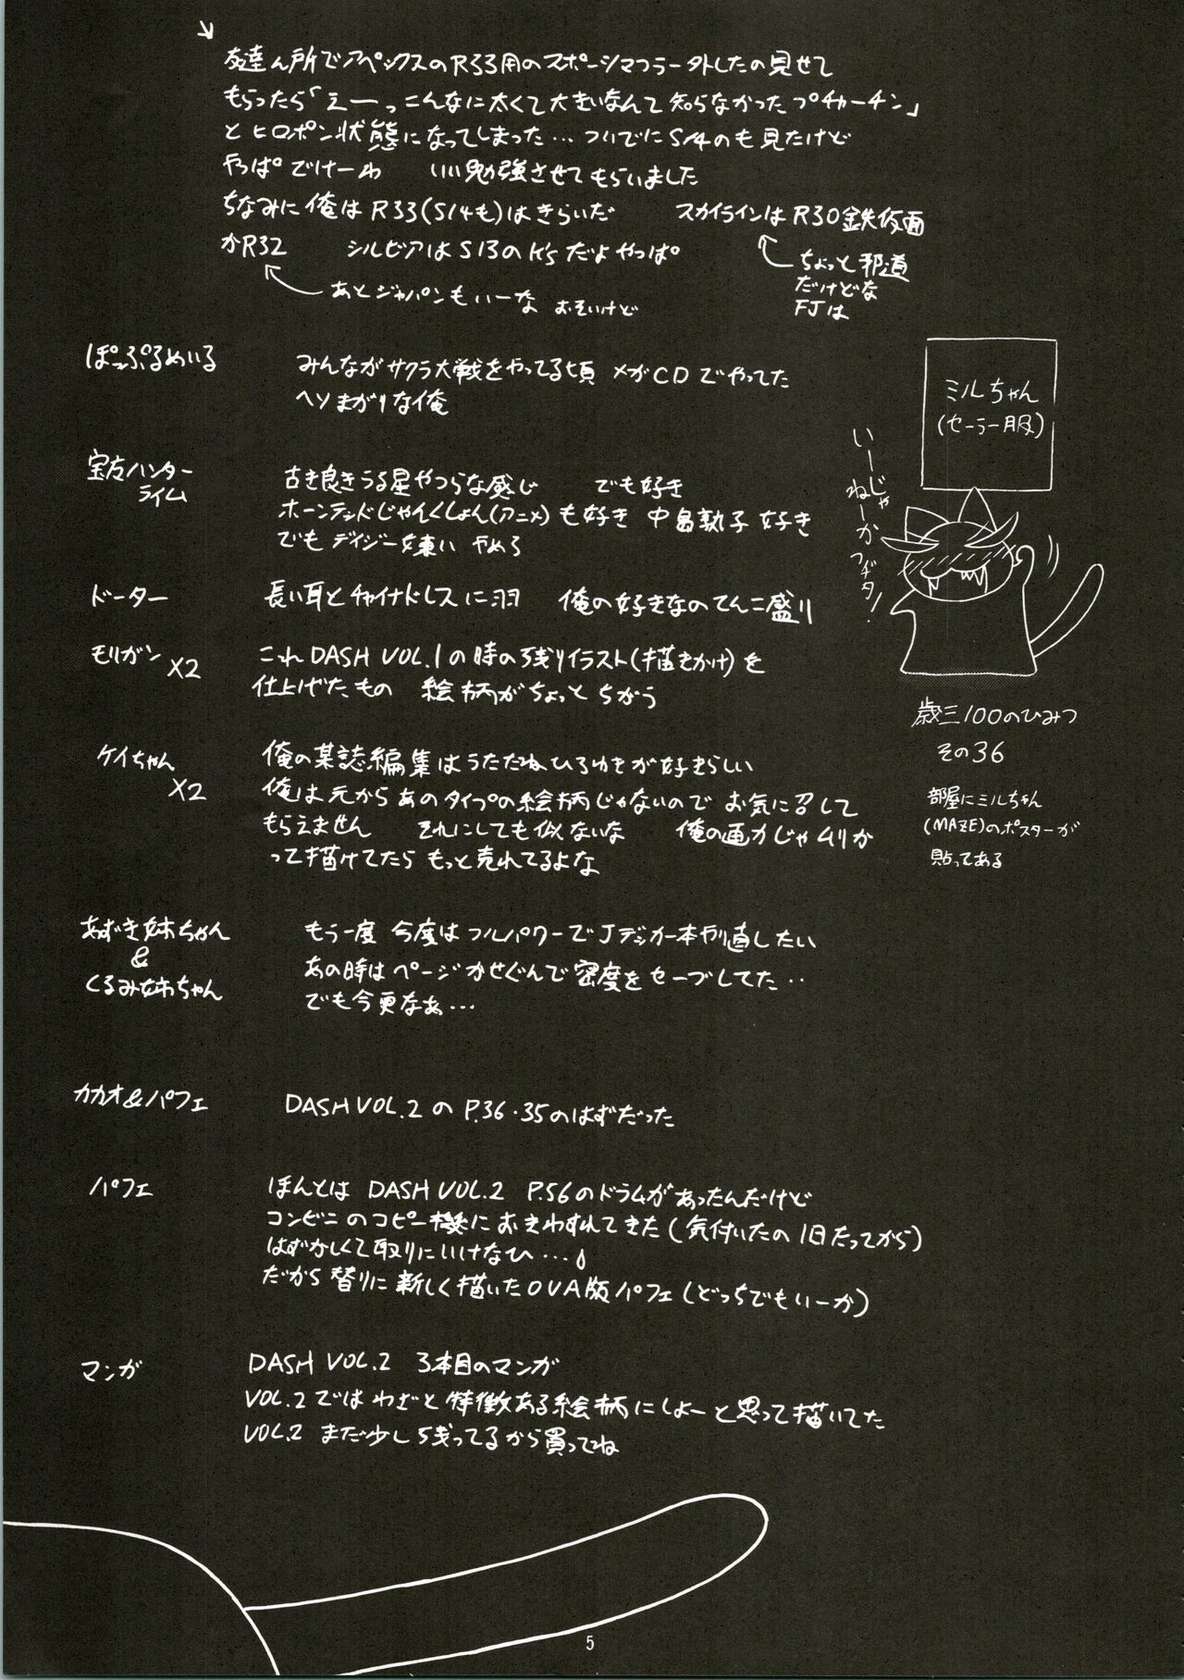 友達ん所でアペックスのR33用のスポーツマフラー外したの見せて
もらったら「えーっこんなに太くて大きいなんて知らなかったプチャーチン」
とヒロポン状態になってしまった…ついでにS14のも見たけど
やっぱでけーわ いい勉強させてもらいました
ちなみに俺はR33(S14も)はきらいだ スカイラインはR30鉄仮面
かR32 シルビアはS13のK'sだよやっぱ
ちょっと邪道
だけどな
FJは
あとジャパンもいーな おそいけど
ぽっぷるめいる
みんながサクラ大戦をやってる頃 メガCDでやってた
ヘソまがりな俺
宝左ハンター
ライム
古き良きうる星やつらな感じ でも好き
ホーンテッドじゃんくしょん(アニメ)も好き 中島敦子好き
でもデイジー嫌い やめろ
ドーター
長い耳とチャイナドレスに羽 俺の好きなのてんこ盛り
モリガン
X2
これDASH VOL.1の時の残りイラスト(描きかけ)を
仕上げたもの 絵柄がちょっとちがう
ケイちゃん
X2
俺の某誌編集はうたたねひろゆきが好きらしい
俺は元からあのタイプの絵柄じゃないので お気に召して
もらえません それにしても似ないな 俺の画力じゃムリか
って描けてたらもっと売れてるよな
あずき姉ちゃん
&
くるみ姉ちゃん
もう一度 今度はフルパワーでJデッカー本やり直したい
あの時はページかせぐんで密度をセーブしてた‥
でも今更なぁ…
カカオ&パフェ
DASH VOL.2のP.36・35のはずだった
パフェ
ほんとは DASH VOL.2 P.56のドラムがあったんだけど
コンビニのコピー機におきわすれてきた(気付いたの1日たってから)
はずかしくて取りにいけなひ…
だから替りに新しく描いたOVA版パフェ(どっちでもいーか)
マンガ
DASH VOL.2 3本目のマンガ
VOL.2ではわざと特徴ある絵柄にしよーと思って描いてた
VOL.2 まだ少し残ってるから買ってね
ミルちゃん
(セーラー服)
いーじゃ
ねーかフヂタ!
歳三100のひみつ
その36
部屋にミルちゃん
(MAZE)のポスターが
貼ってある
5